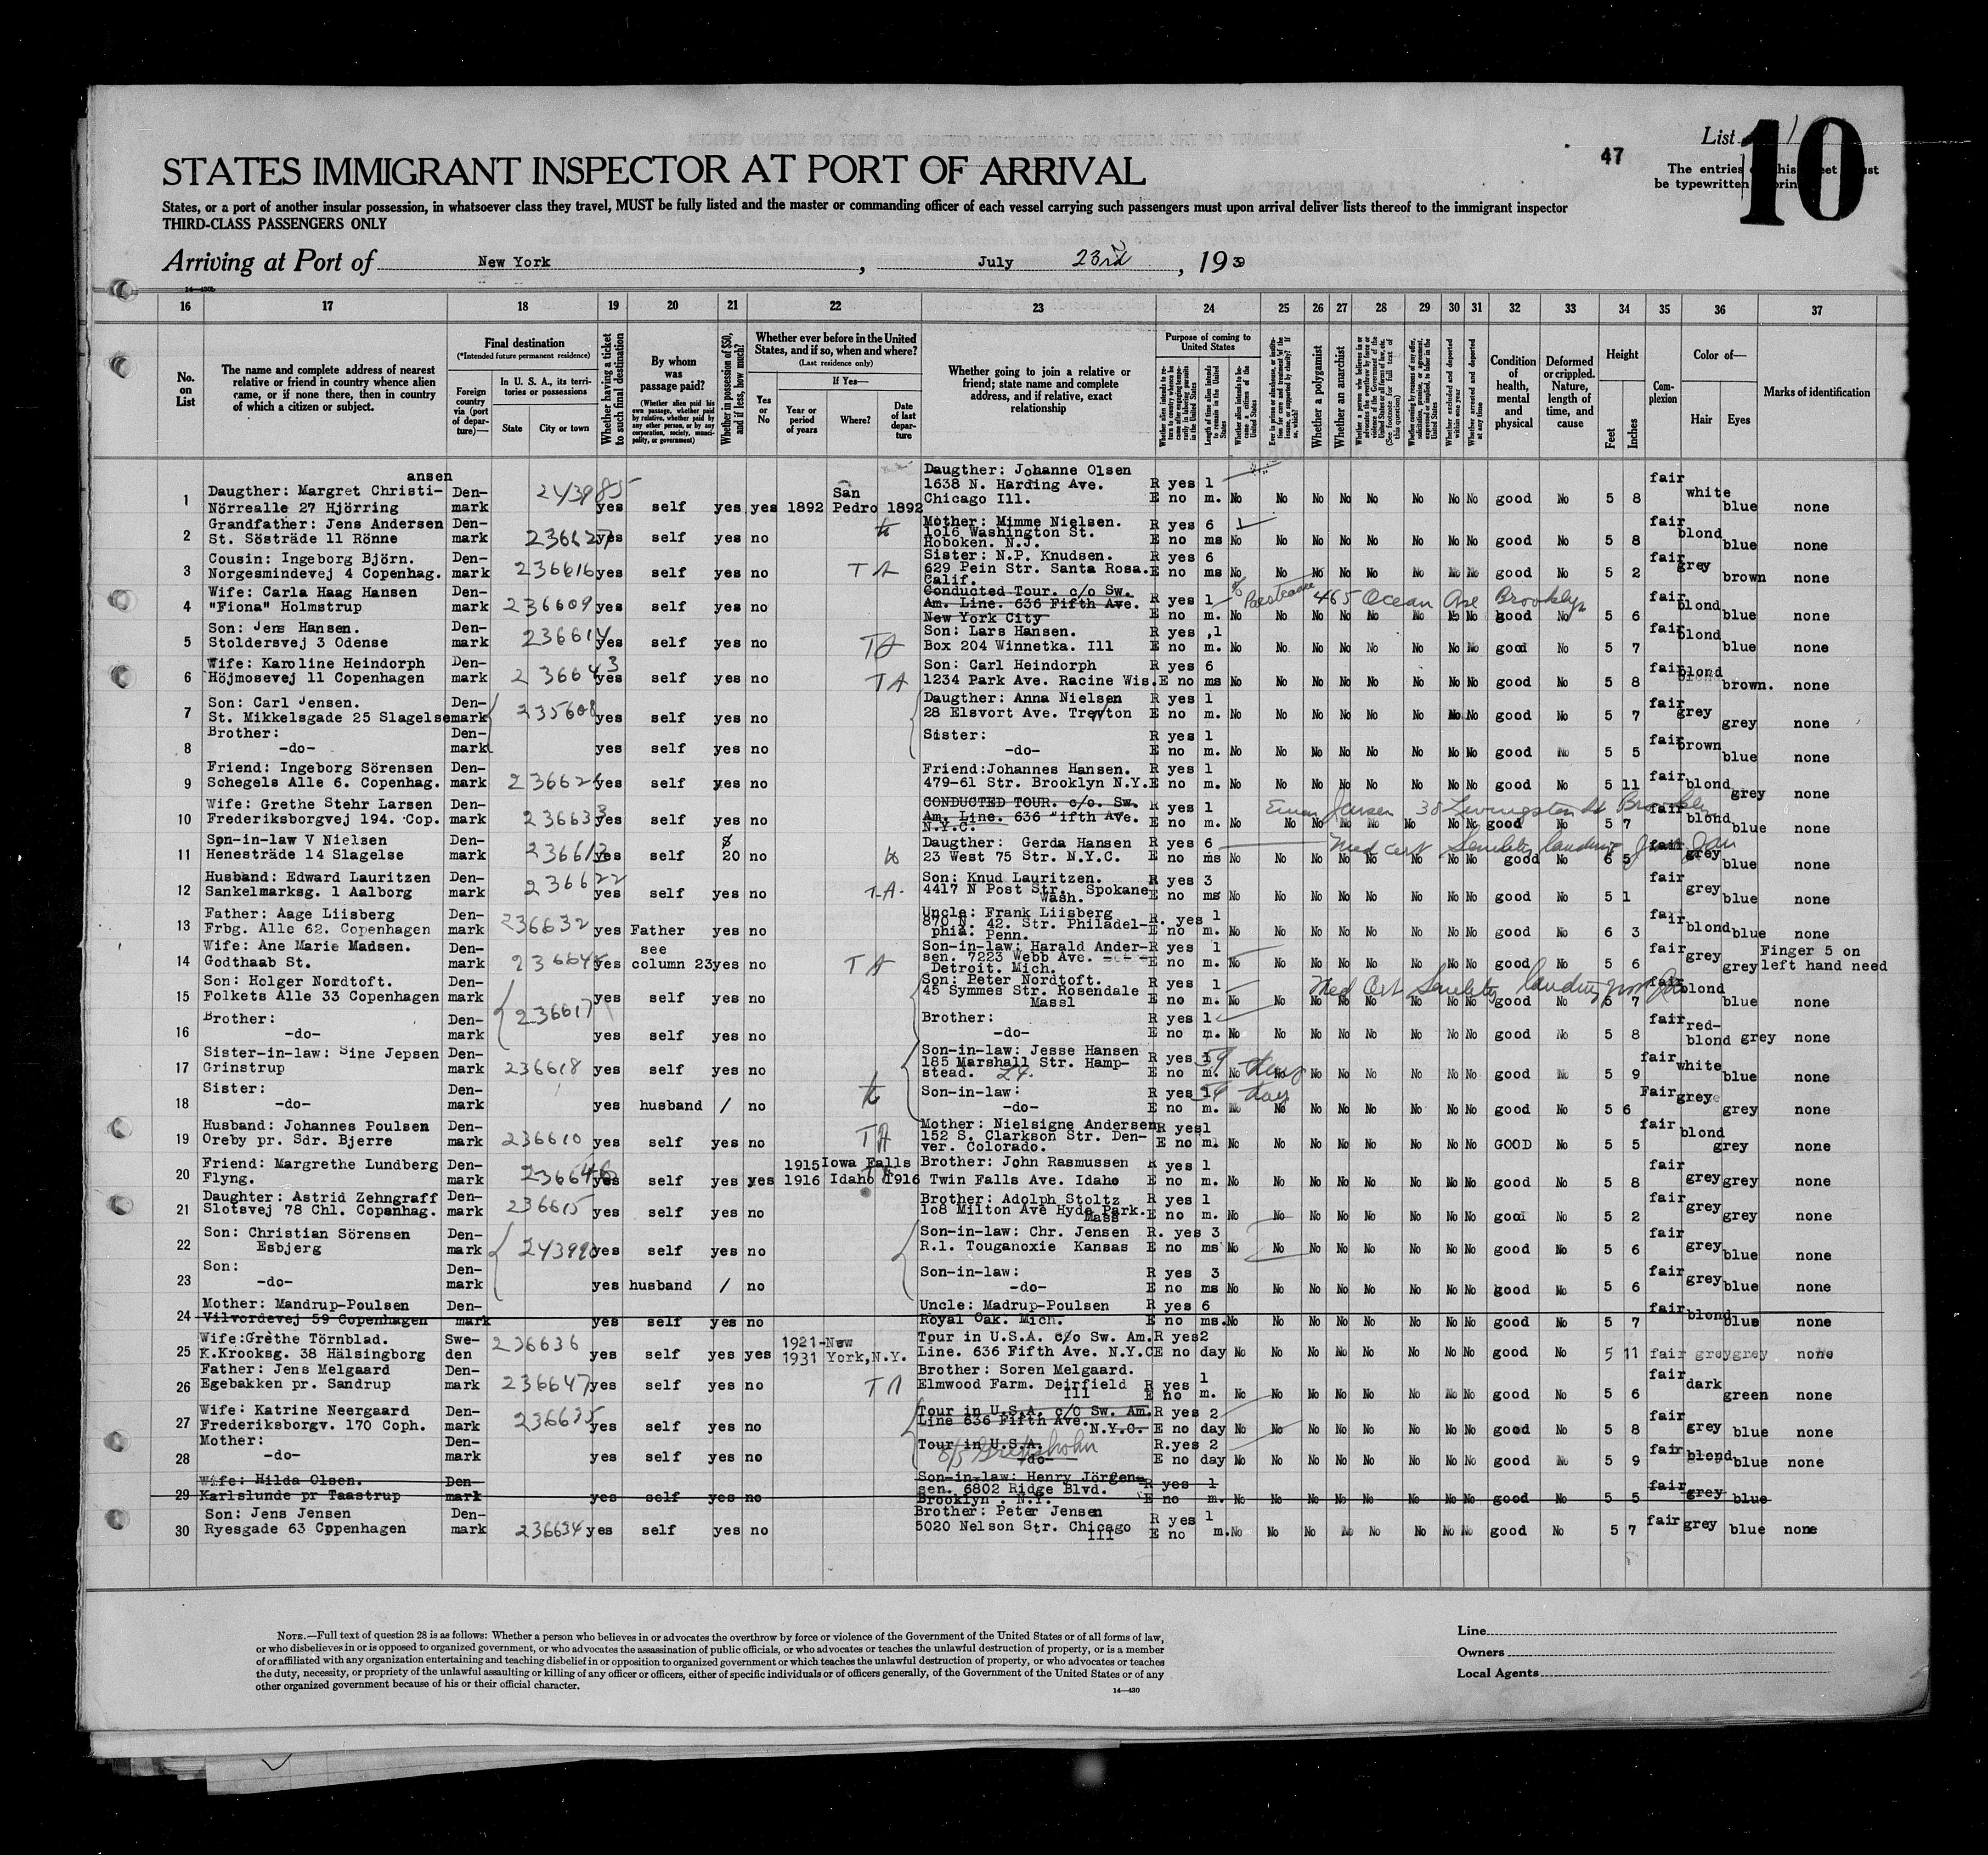 List 1
10
47
The entries
be typewritten
STATES IMMIGRANT INSPECTOR AT PORT OF ARRIVAL
States, or a port of another insular possession, in whatsoever class they travel, MUST be fully listed and the master or commanding officer of each vessel carrying such passengers must upon arrival deliver lists thereof to the immigrant inspector
THIRD-CLASS PASSENGERS ONLY
Arriving at Port of New York, July 23rd, 1939
16 17 18 19 20 21 22 23 24 25 26 27 28 29 30 31 32 33 34 35 36 37
No. on List
The name and complete address of nearest relative or friend in country whence alien came, or if none there, then in country of which a citizen or subject.
Final destination
(*Intended future permanent residence)
Foreign country via (port of departure)—
In U. S. A., its territories or possessions
State
City or town
Whether having a ticket to such final destination
By whom was passage paid?
(Whether alien paid his own passage, whether paid by relative, whether paid by any other person, or by any corporation, society, municipality, or government)
Whether in possession of $50, and if less, how much?
Whether ever before in the United States, and if so, when and where?
(Last residence only)
Yes or No
If Yes—
Year or period of years
Where?
Date of last departure
Whether going to join a relative or friend; state name and complete address, and if relative, exact relationship
Purpose of coming to United States
Length of time alien intends to remain in the United States
Whether a polygamist
Whether an anarchist
Condition of health, mental and physical
Deformed or crippled. Nature, length of time, and cause
Height
Feet
Inches
Complexion
Color of—
Hair
Eyes
Marks of identification
1 Daugther: Margret Christiansen Nörrealle 27 Hjörring Denmark 243985 yes self yes yes 1892 San Pedro 1892 Daugther: Johanne Olsen 1638 N. Harding Ave. Chicago Ill. R yes 1 E no m. No No No No No No No No good No 5 8 fair white blue none
2 Grandfather: Jens Andersen St. Söströde 11 Rönne Denmark 236627 yes self yes no Mother: Mimme Nielsen. 1016 Washington St. Hoboken. N.J. R yes 6 E no ms No No No No No No No No good No 5 8 fair blond blue none
3 Cousin: Ingeborg Björn. Norgesmindevej 4 Copenhag. Denmark 236616 yes self yes no TA Sister: N.P. Knudsen. 629 Pein Str. Santa Rosa. Calif. R yes 6 E no ms No No No No No No No No good No 5 2 fair grey brown none
4 Wife: Carla Haag Hansen "Fiona" Holmstrup Denmark 236609 yes self yes no Conducted Tour. c/o Sw. Am. Line. 636 Fifth Ave. New York City R yes 1 E no m. 465 Ocean Ave Brooklyn No No No No No No No No good No 5 6 fair blond blue none
5 Son: Jens Hansen. Stoldersvej 3 Odense Denmark 236614 yes self yes no TA Son: Lars Hansen. Box 204 Winnetka. Ill R yes 1 E no m. No No No No No No No No good No 5 7 fair blond blue none
6 Wife: Karoline Heindorph Höjmosevej 11 Copenhagen Denmark 236643 yes self yes no TA Son: Carl Heindorph 1234 Park Ave. Racine Wis. R yes 6 E no ms No No No No No No No No good No 5 8 fair blond brown. none
7 Son: Carl Jensen. St. Mikkelsgade 25 Slagelse Denmark 235608 yes self yes no Daugther: Anna Nielsen 28 Elsvort Ave. Trenton R yes 1 E no m. No No No No No No No No good No 5 7 fair grey grey none
8 Brother: -do- Denmark yes self yes no Sister: -do- R yes 1 E no m. No No No No No No No No good No 5 5 fair brown blue none
9 Friend: Ingeborg Sörensen Schegels Alle 6. Copenhag. Denmark 236624 yes self yes no Friend: Johannes Hansen. 479-61 Str. Brooklyn N.Y. R yes 1 E no m. No No No No No No No No good No 5 11 fair blond grey none
10 Wife: Grethe Stehr Larsen Frederiksborgvej 194. Cop. Denmark 236633 yes self yes no CONDUCTED TOUR. c/o. Sw. Am. Line. 636 Fifth Ave. N.Y.C. R yes 1 E no m. Jensen 38 Livingston St Brooklyn No No No No No No No No good No 5 7 fair blond blue none
11 Son-in-law V Nielsen Henesträde 14 Slagelse Denmark 236613 yes self $ 20 no Daugther: Gerda Hansen 23 West 75 Str. N.Y.C. R yes 6 E no ms Med cert Senility landing No No No No No No No No good No 6 5 fair grey blue none
12 Husband: Edward Lauritzen Sankelmarksg. 1 Aalborg Denmark 236622 yes self yes no T.A. Son: Knud Lauritzen. 4417 N Post Str. Spokane Wash. R yes 3 E no ms No No No No No No No No good No 5 1 fair grey blue none
13 Father: Aage Liisberg Frbg. Alle 62. Copenhagen Denmark 236632 yes Father yes no Uncle: Frank Liisberg 870 N. 42. Str. Philadelphia. Penn. R. yes 1 E no m. No No No No No No No No good No 6 3 fair blond blue none
14 Wife: Ane Marie Madsen. Godthaab St. Denmark 236645 yes see column 23 yes no TA Son-in-law: Harald Andersen. 7223 Webb Ave. Detroit. Mich. R yes 1 E no m. No No No No No No No No good No 5 6 fair grey grey Finger 5 on left hand need
15 Son: Holger Nordtoft. Folkets Alle 33 Copenhagen Denmark 236617 yes self yes no Son: Peter Nordtoft. 45 Symmes Str. Rosendale Massl R yes 1 E no m. Med Cert Senility landing No No No No No No No No good No 6 7 fair blond blue none
16 Brother: -do- Denmark yes self yes no Brother: -do- R yes 1 E no m. No No No No No No No No good No 5 8 fair red-blond grey none
17 Sister-in-law: Sine Jepsen Grinstrup Denmark 236618 yes self yes no Son-in-law: Jesse Hansen 185 Marshall Str. Hampstead. R yes 1 E no m. 59 days No No No No No No No good No 5 9 fair white blue none
18 Sister: -do- Denmark yes husband / no Son-in-law: -do- R yes 1 E no m. 59 days No No No No No No No No good No 5 6 Fair grey grey none
19 Husband: Johannes Poulsen Oreby pr. Sdr. Bjerre Denmark 236610 yes self yes no TA Mother: Nielsigne Andersen 152 S. Clarkson Str. Denver. Colorado. R yes 1 E no m. No No No No No No No No GOOD No 5 5 fair blond grey none
20 Friend: Margrethe Lundberg Flyng. Denmark 236646 yes self yes yes 1915 1916 Iowa Falls Idaho 1916 Brother: John Rasmussen Twin Falls Ave. Idaho R yes 1 E no m. No No No No No No No No good No 5 8 fair grey grey none
21 Daughter: Astrid Zehngraff Slotsvej 78 Chl. Copenhag. Denmark 236615 yes self yes no Brother: Adolph Stoltz 108 Milton Ave Hyde Park. Mass R yes 1 E no m. No No No No No No No No good No 5 2 fair grey grey none
22 Son: Christian Sörensen Esbjerg Denmark 243990 yes self yes no Son-in-law: Chr. Jensen R.1. Touganoxie Kansas R. yes 3 E no ms No No No No No No No No good No 5 6 fair grey blue none
23 Son: -do- Denmark yes husband / no Son-in-law: -do- R yes 3 E no ms No No No No No No No No good No 5 6 fair grey blue none
24 Mother: Mandrup-Poulsen Vilvordevej 59 Copenhagen Denmark yes self yes no Uncle: Madrup-Poulsen Royal Oak. Mich. R yes 6 E no ms. No No No No No No No No good No 5 7 fair blond blue none
25 Wife: Grethe Törnblad. K.Krooksg. 38 Hälsingborg Sweden 236636 yes self yes yes 1921-1931 New York, N.Y. Tour in U.S.A. c/o Sw. Am. Line. 636 Fifth Ave. N.Y.C R yes 2 E no day No No No No No No No No good No 5 11 fair grey grey none
26 Father: Jens Melgaard Egebakken pr. Sandrup Denmark 236647 yes self yes no TA Brother: Soren Melgaard. Elmwood Farm. Deirfield Ill R yes 1 E no m. No No No No No No No No good No 5 6 fair dark green none
27 Wife: Katrine Neergaard Frederiksborgv. 170 Coph. Denmark 236635 yes self yes no Tour in U.S.A. c/o Sw. Am. Line 636 Fifth Ave. N.Y.C. R yes 2 E no day No No No No No No No No good No 5 8 fair grey blue none
28 Mother: -do- Denmark yes self yes no Tour in U.S.A. -do- R. yes 2 E no day No No No No No No No No good No 5 9 fair blond blue none
29 Wife: Hilda Olsen. Karlslunde pr Taastrup Denmark yes self yes no Son-in-law: Henry Jörgensen. 6802 Ridge Blvd. Brooklyn. N.Y. R yes 1 E no m. No No No No No No No No good No 5 5 fair grey blue
30 Son: Jens Jensen Ryesgade 63 Copenhagen Denmark 236634 yes self yes no Brother: Peter Jensen 5020 Nelson Str. Chicago Ill R yes 1 E no m. No No No No No No No No good No 5 7 fair grey blue none
NOTE.—Full text of question 28 is as follows: Whether a person who believes in or advocates the overthrow by force or violence of the Government of the United States or of all forms of law,
or who disbelieves in or is opposed to organized government, or who advocates the assassination of public officials, or who advocates or teaches the unlawful destruction of property, or is a member
of or affiliated with any organization entertaining and teaching disbelief in or opposition to organized government or which teaches the unlawful destruction of property, or who advocates or teaches
the duty, necessity, or propriety of the unlawful assaulting or killing of any officer or officers, either of specific individuals or of officers generally, of the Government of the United States or of any
other organized government because of his or their official character.
14—430
Line
Owners
Local Agents